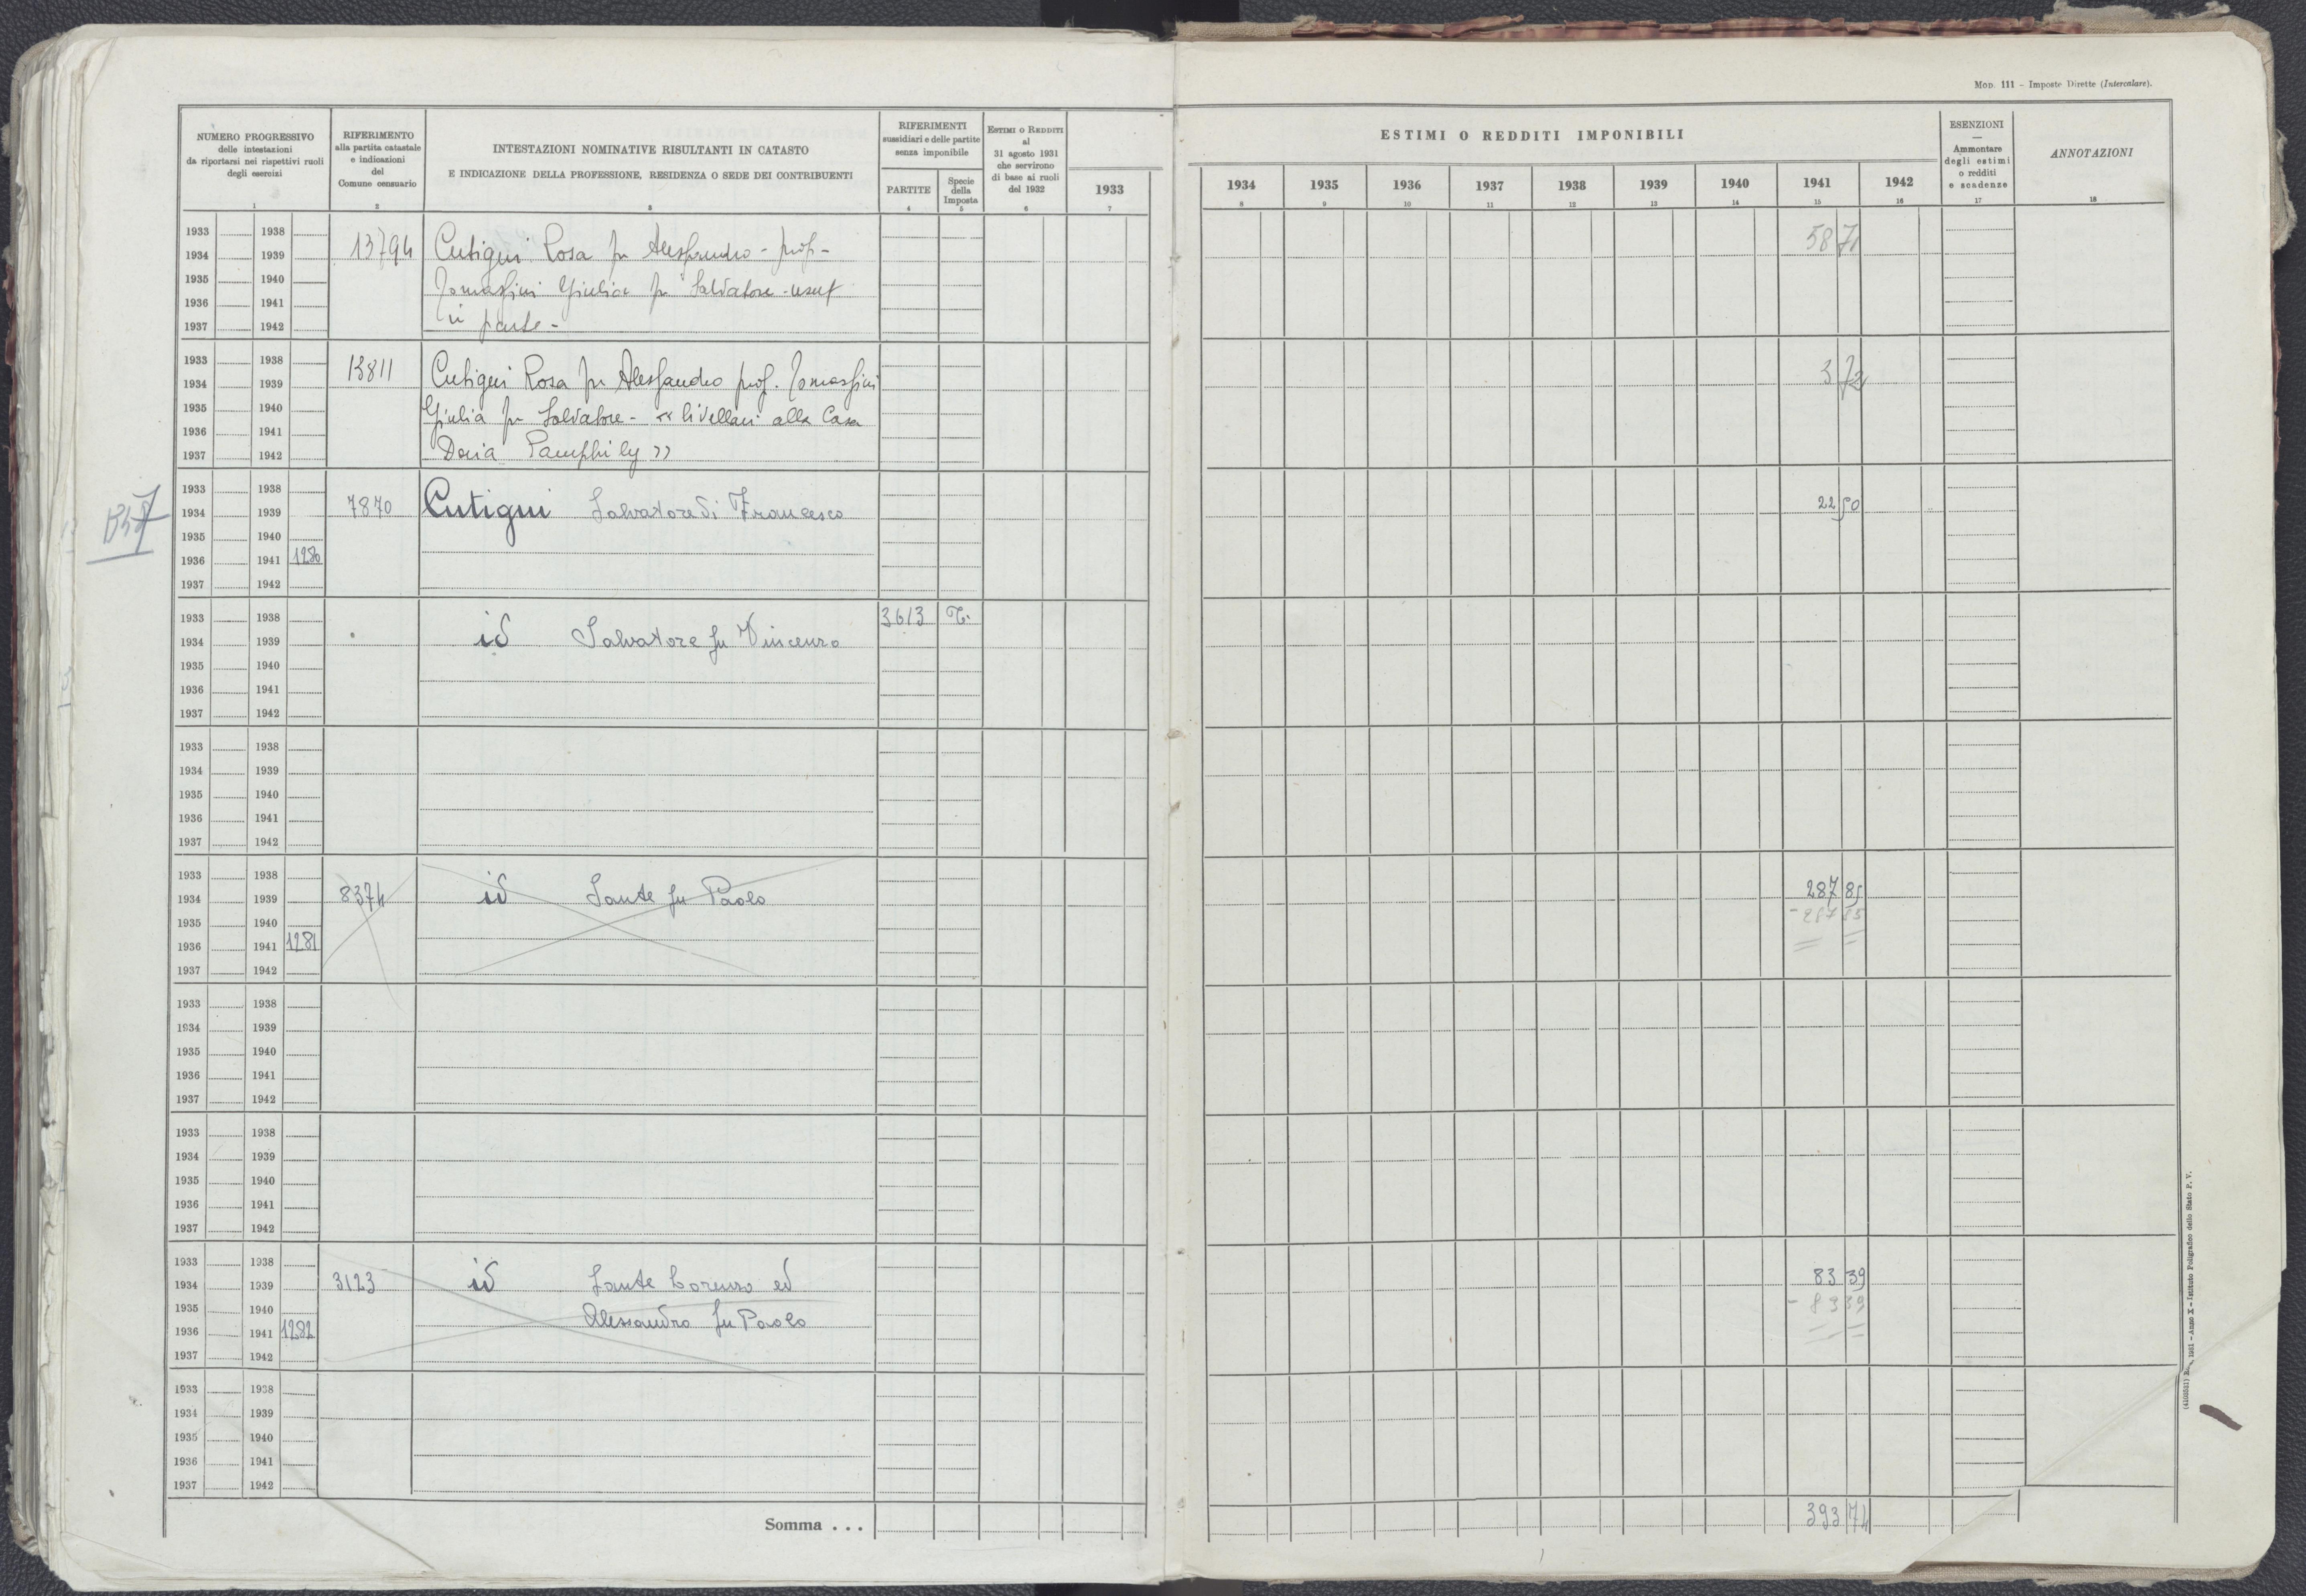 Mod. 111 - Imposte Dirette (Intercalare).
NUMERO PROGRESSIVO
delle intestazioni
da riportarsi nei rispettivi ruoli
degli esercizi
1
RIFERIMENTO
alla partita catastale
e indicazioni
del
Comune censuario
2
INTESTAZIONI NOMINATIVE RISULTANTI IN CATASTO
E INDICAZIONE DELLA PROFESSIONE, RESIDENZA O SEDE DEI CONTRIBUENTI
3
RIFERIMENTI
sussidiari e delle partite
senza imponibile
PARTITE
4
Specie
della
Imposta
5
Estimi o Redditi
al
31 agosto 1931
che servirono
di base ai ruoli
del 1932
6
1933
7
ESTIMI O REDDITI IMPONIBILI
1934 1935 1936 1937 1938 1939 1940 1941 1942
8 9 10 11 12 13 14 15 16
ESENZIONI
—
Ammontare
degli estimi
o redditi
e scadenze
17
ANNOTAZIONI
18
1933 1938
1934 1939 13794 Cutigni Rosa fu Alessandro - prop - 58 71
1935 1940 Tomassini Giulia fu Salvatore - usuf
1936 1941 in parte -
1937 1942
1933 1938
1934 1939 13811 Cutigni Rosa fu Alessandro prop. Tomassini 3 72
1935 1940 Giulia fu Salvatore - « livellari alla Casa
1936 1941 Doria Pamphily »
1937 1942
1933 1938
1934 1939 7870 Cutigni Salvatore di Francesco 22 50
1935 1940
1936 1941 1280
1937 1942
1933 1938 3613 T.
1934 1939 id Salvatore fu Vincenzo
1935 1940
1936 1941
1937 1942
1933 1938
1934 1939
1935 1940
1936 1941
1937 1942
1933 1938
1934 1939 8374 id Sante fu Paolo 287 85
1935 1940 - 287 85
1936 1941 1281
1937 1942
1933 1938
1934 1939
1935 1940
1936 1941
1937 1942
1933 1938
1934 1939
1935 1940
1936 1941
1937 1942
1933 1938
1934 1939 3123 id Sante Lorenzo ed 83 39
1935 1940 Alessandro fu Paolo - 83 39
1936 1941 1282
1937 1942
1933 1938
1934 1939
1935 1940
1936 1941
1937 1942
Somma . . . 393 74